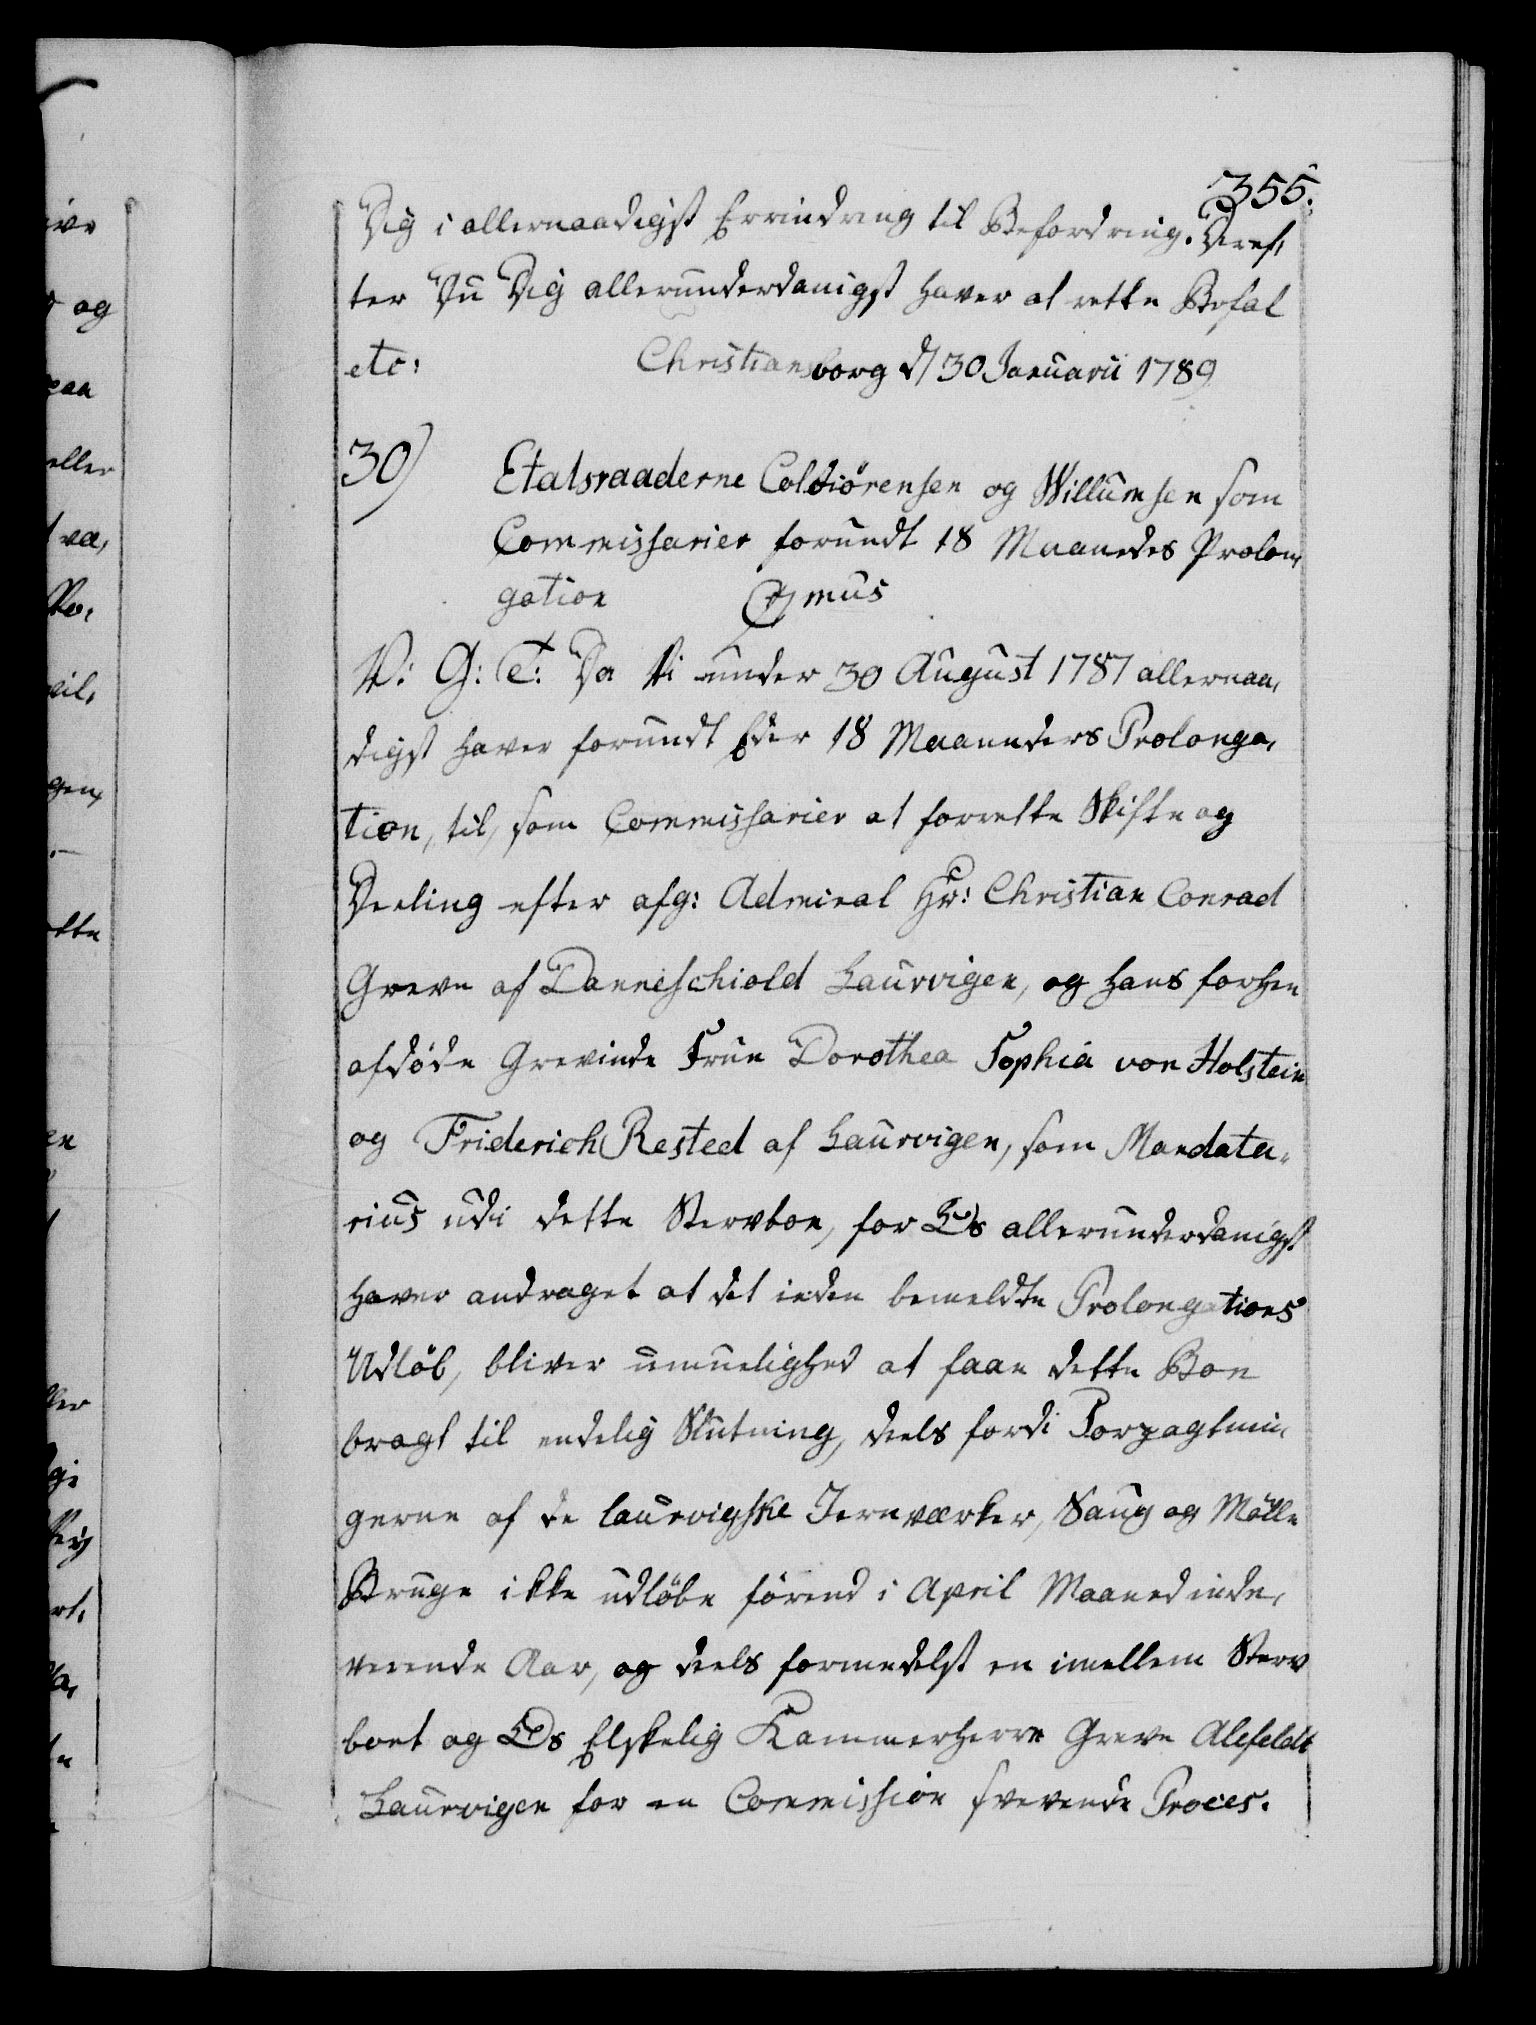 355.
Dig i allernaadigst Erindring til Befordring. Deref,
ter Du Dig allerunderdanigst haver at rette Befal
etc: Christiansborg d/ 30 Januarii 1789
30) Etatsraaderne Colbiörensen og Willumsen som
Commissarier forundt 18 Maaneders Prolon,
gation
V: G: T: Da Vi under 30 August 1787 allernaa,
digst haver forundt Eder 18 Maanneders Prolonga,
tion, til, som Commissarier at forrette Skifte og
Deeling efter afg: Admiral Hr: Christian Conrad
Greve af Danneschiold Laurvigen, og hans forhen
afdöde Grevinde Frue Dorothea Sophia von Holstein
og Friderich Rested af Laurvigen, som Mandata,
rius udi dette Stervboe, for Os allerunderdanigst
haver andraget at det inden bemeldte Prolongations
Udlöb, bliver umuelighed at faae dette Boe
bragt til endelig Slutning, deels fordi Forpagtnin,
gerne af de laurvigske Jernværker, Saug og Mölle
Bruge ikke udlöbe förend i April Maaned inde,
verende Aar, og deels formedelst en imellem Sterv
boet og Os Elskelig Kammerherre Greve Alefeldt
Laurvigen for en Commission svevende Proces.
ive
og
paa
eller
gen,
ette
en
ller